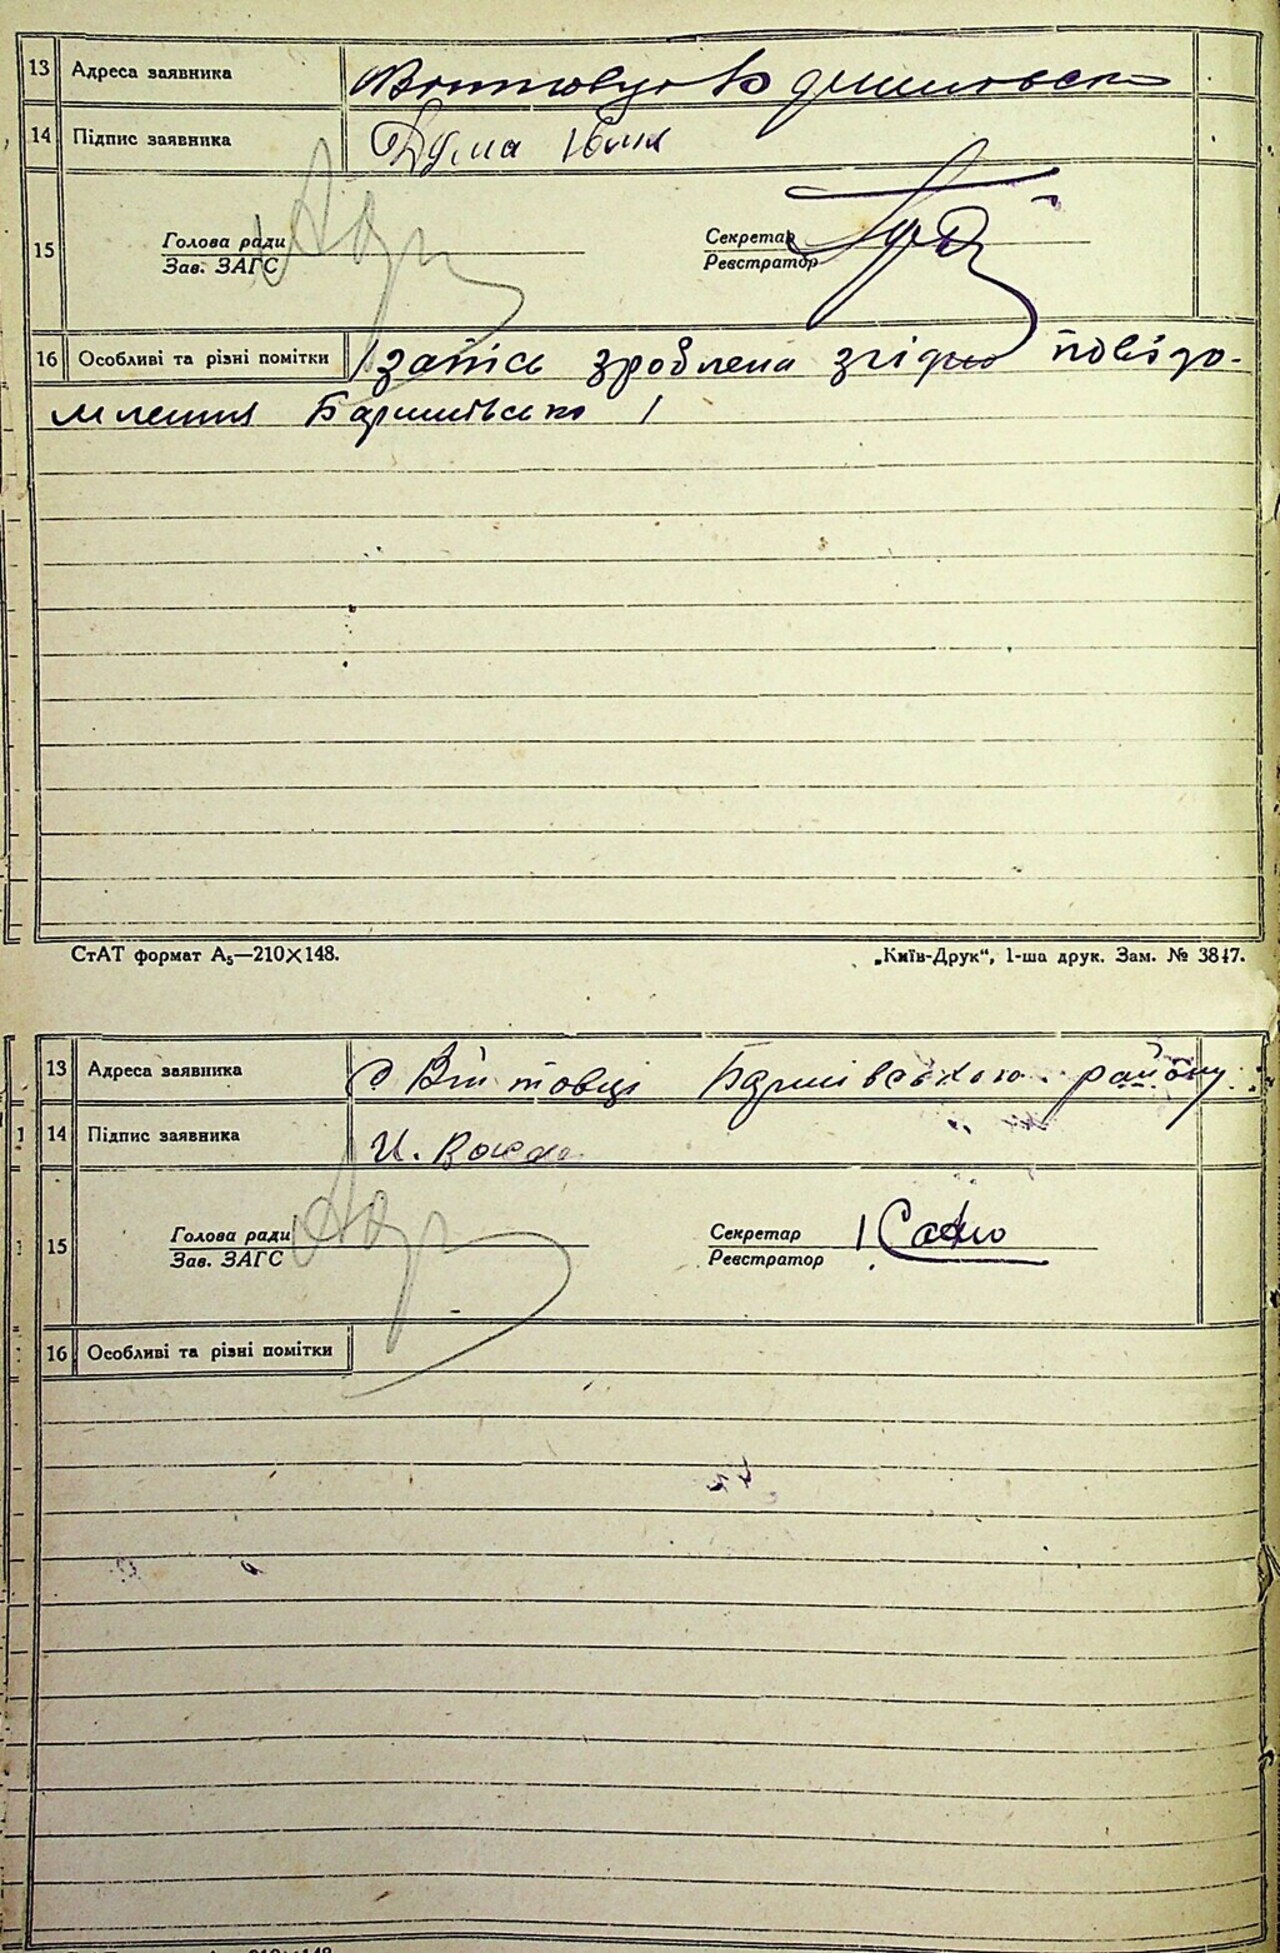 13 Адреса заявника
14 Підпис заявника Дума Юлия
15 Голова ради Секретар
Зав. ЗАГС Реєстратор
16 Особливі та різні помітки запісь зроблена згідно повідо-
млення Баришівсько
СтАТ формат А5—210×148. „Київ-Друк“, 1-ша друк. Зам. № 3847.
13 Адреса заявника с Війтовці Баришівського району
14 Підпис заявника И.
15 Голова ради Секретар
Зав. ЗАГС Реєстратор
16 Особливі та різні помітки